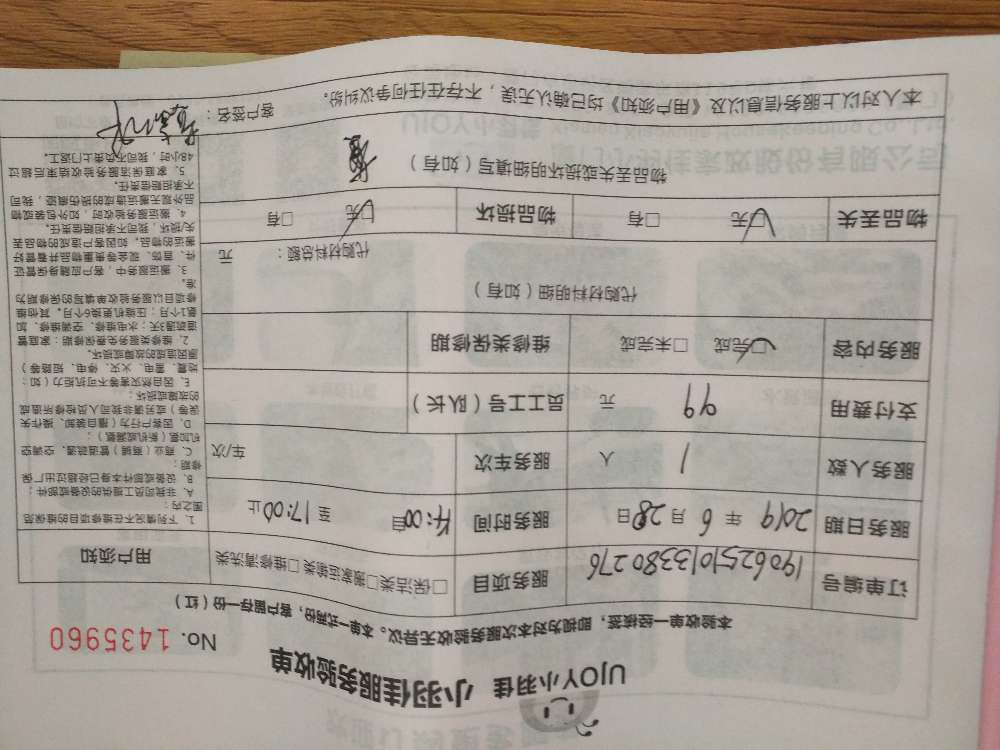 UJOY小羽佳 小羽佳服务验收单
No. 1435960
本验收单一经核签，即视为对本次服务验收无异议。本单一式两份，客户留存一份（红）
订单编号 190625101338027​6 服务项目 □保洁类□搬家运输类□维修清洗类 用户须知
服务日期 2019 年 6 月 28 日 服务时间 自 14:00 至 17:00 止
服务人数 1 人 服务车次 车/次
支付费用 99 元 员工工号（队长）
服务内容 □完成 □未完成 维修类保修期
代购材料明细（如有） 代购材料总额： 元
物品丢失 □无 □有 物品损坏 □无 □有
物品丢失或损坏明细填写（如有）
本人对以上服务信息以及《用户须知》均已确认无误，不存在任何争议纠纷。 客户签名：
1、下列情况不在维修项目的维保范
围之内：
A、非我司员工提供的设备或部件；
B、设备或部件本身已经超过出厂保
修期；
C、商业（商铺）管道疏通、空调空
机加氨（新机或漏氨）；
D、因客户行为（擅自装卸、操作失
误等）或另请非我司人员检修所造成
的故障或损坏；
E、因自然灾害等不可抗能力（如：
地震、雷电、火灾、停电、短路等）
原因造成的故障或损坏。
2、维修类服务免费保修期：家庭管
道疏通3天；水电维修、空调维修、加
氨1个月；压缩机更换6个月，其他维
修项目以服务验收单填写的保修期为
准。
3、搬运服务中，客户应随身保管证
件、首饰、现金等贵重物品并看管好
搬运的物品，如因客户造成的物品丢
失/损坏，我司不承担赔偿责任。
4、搬运服务验收时，如外包装或物
品外观无搬运造成的损伤痕迹，我司
不承担赔偿责任。
5、家庭保洁服务验收结束后超过
48小时，我司不负责上门返工。